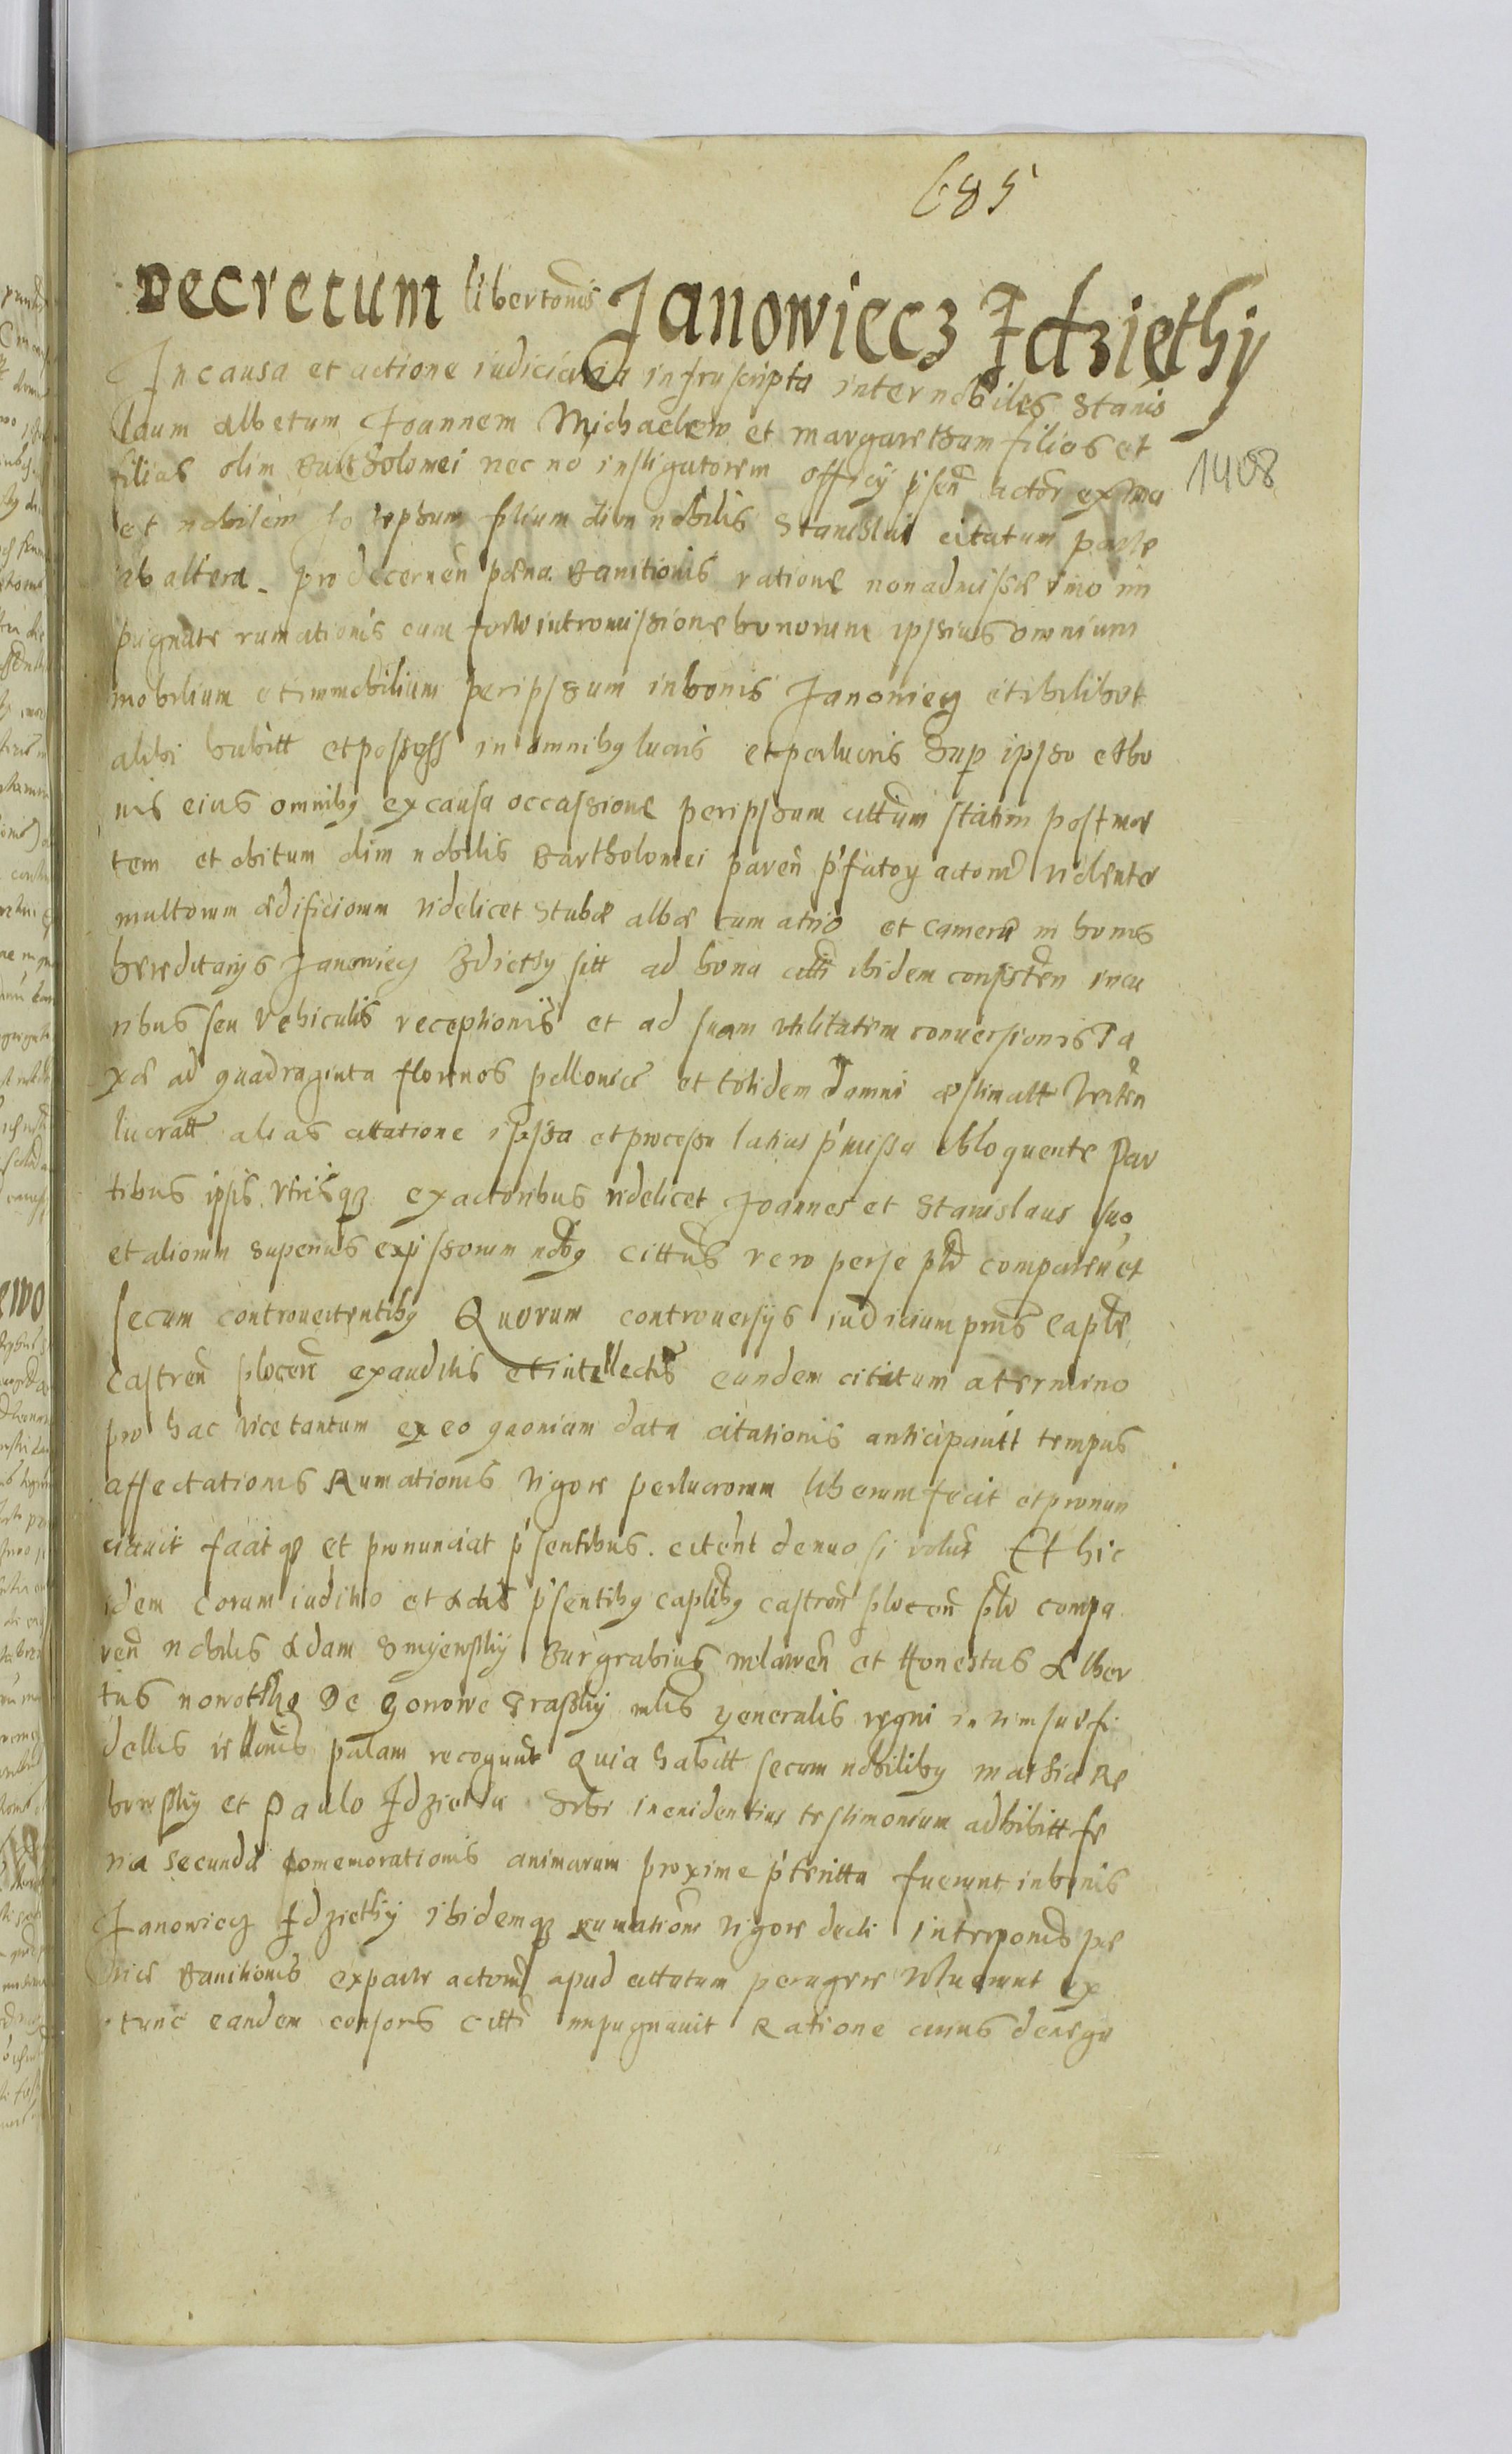 685
Decretum libertonis Janowiecz Idziethy
In causa et actione iudiciaria infrascripta inter nobiles Stanis
laum Albetum Joannem Michaelem et margaretham filios et
1408
filias olim Bartholomei nec nō instigatorem officy p'sen actor ex una
et nobilem Josephum filium olim nobilis Stanislai citatum parte
ab altera. pro decernen pæna Banitionis ratione non admissæ imo im
pugnate rumationis cum intromissione bonorum ipsius omnium
mobilium et immobilium per ipsum in bonis Janowiecz et ubilibet
alibi habitt et possess in omniby lucris et perlucris sup ipso et bo
nis eius omniby ex causa occassione per ipsum cittum statim post mor
tem et obitum olim nobilis Bartholomei paren p'fatoy actorum violente
multorum ædificiorum videlicet stubæ albæ cum atrio et camera in bonis
hereditarys Janowiecz Idziethy sitt ad bona citti ibidem consisten in cu
ribus seu vehiculis receptionis et ad suam utilitatem conuersionis Ta
xæ ad quadraginta florenos pollonice et totidem damni æstimatt
lucratt alias citatione ipssa et processu latius p'missa obloquente Par
tibus ipsis utrisq3 ex actoribus videlicet Joannes et Stanislaus suo
et aliorum superius exp'ssorum noby cittus vero per se pld comparen et
secum controuertentiby Quorum controuersys iudicium pns Caple
castren plocen exauditis et intellectis eundem citatum a termino
pro hac vice tantum ex eo quoniam data citationis anticipauit tempus
affectationis Rumationis vigore perlucrorum liberum fecit et pronun
ciauit facitq3 et pronunciat p'sentibus. citent denuo si volut Et hic
idem coram iuditio et Actis p'sentiby capliby castren plocen pld compa
ren nobilis Adam Smyewsky Burgrabius mlawen et Honestus Alber
tus nowothko De Gonowe Grassky mlis generalis regni in vim suæ fi
dellis rellonis palam recognunt Quia habitt secum nobiliby mathia Re
bowsky et Paulo Idziethe Sibi in euidentius testimonium adhibitt fe
ria secunda comemorationis animarum proxime p'teritta fuerunt in bonis
Janowiecz Idziethy ibidemq3 rumationem vigore decti interponis pæ
næ Banitionis ex parte actorum apud cittatum peragere voluerunt ex
tunc eandem consors citti impugnauit Ratione cuius denega